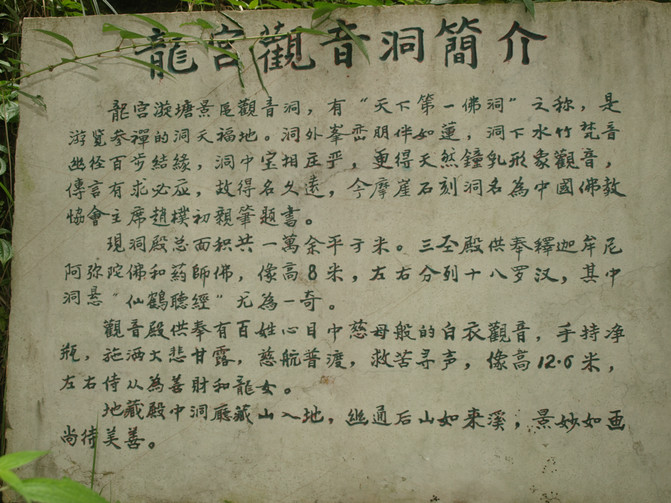 龍宮觀音洞簡介
龍宮漩塘景區觀音洞，有“天下第一佛洞”之称，是
游览参禪的洞天福地。洞外峯峦朋伴如蓮，洞下水竹梵音
幽径百步结緣，洞中宝相庄乎，更得天然鐘乳形象觀音，
傳言有求必应，故得名久遠，今摩崖石刻洞名為中國佛教
協會主席趙樸初親筆题書。
現洞殿总面积共一萬余平方米。三圣殿供奉釋迦牟尼
阿弥陀佛和葯師佛，像高8米，左右分列十八罗汉，其中
洞悬“仙鶴聽經”尤為一奇。
觀音殿供奉有百姓心目中慈母般的白衣觀音，手持净
瓶，施洒大悲甘露，慈航普渡，救苦寻声，像高12.6米，
左右侍从為善財和龍女。
地藏殿中洞廳藏山入地，幽通后山如来溪；景妙如画
尚待美善。